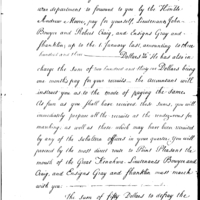 War department so forward to you by the Honble
Andrew Moore, pay for yourself, Lieutenants John
Bowyer and Robert Craig, and Ensigns Gray and
Franklin, up to the 1 January last, amounting to three
hundred and three Dollars He has also in
charge the sum of two hundred and three Dollars being
one months pay for your recruits - the accountant will
instruct you as to the mode of paying the same.
So far as you shall have received that sum, you will
immediately prepare all the recruits at the rendezvous for
marching, as well as those which may have been received
by any of the subaltern officers in your quarter. You will
proceed by the most direct route to Point Pleasant the
mouth of the Great Kenahwa Lieutenants Bowyer and
Craig, and Ensigns Gray and Franklin must march
with you —
The sum of fifty Dollars to defray the